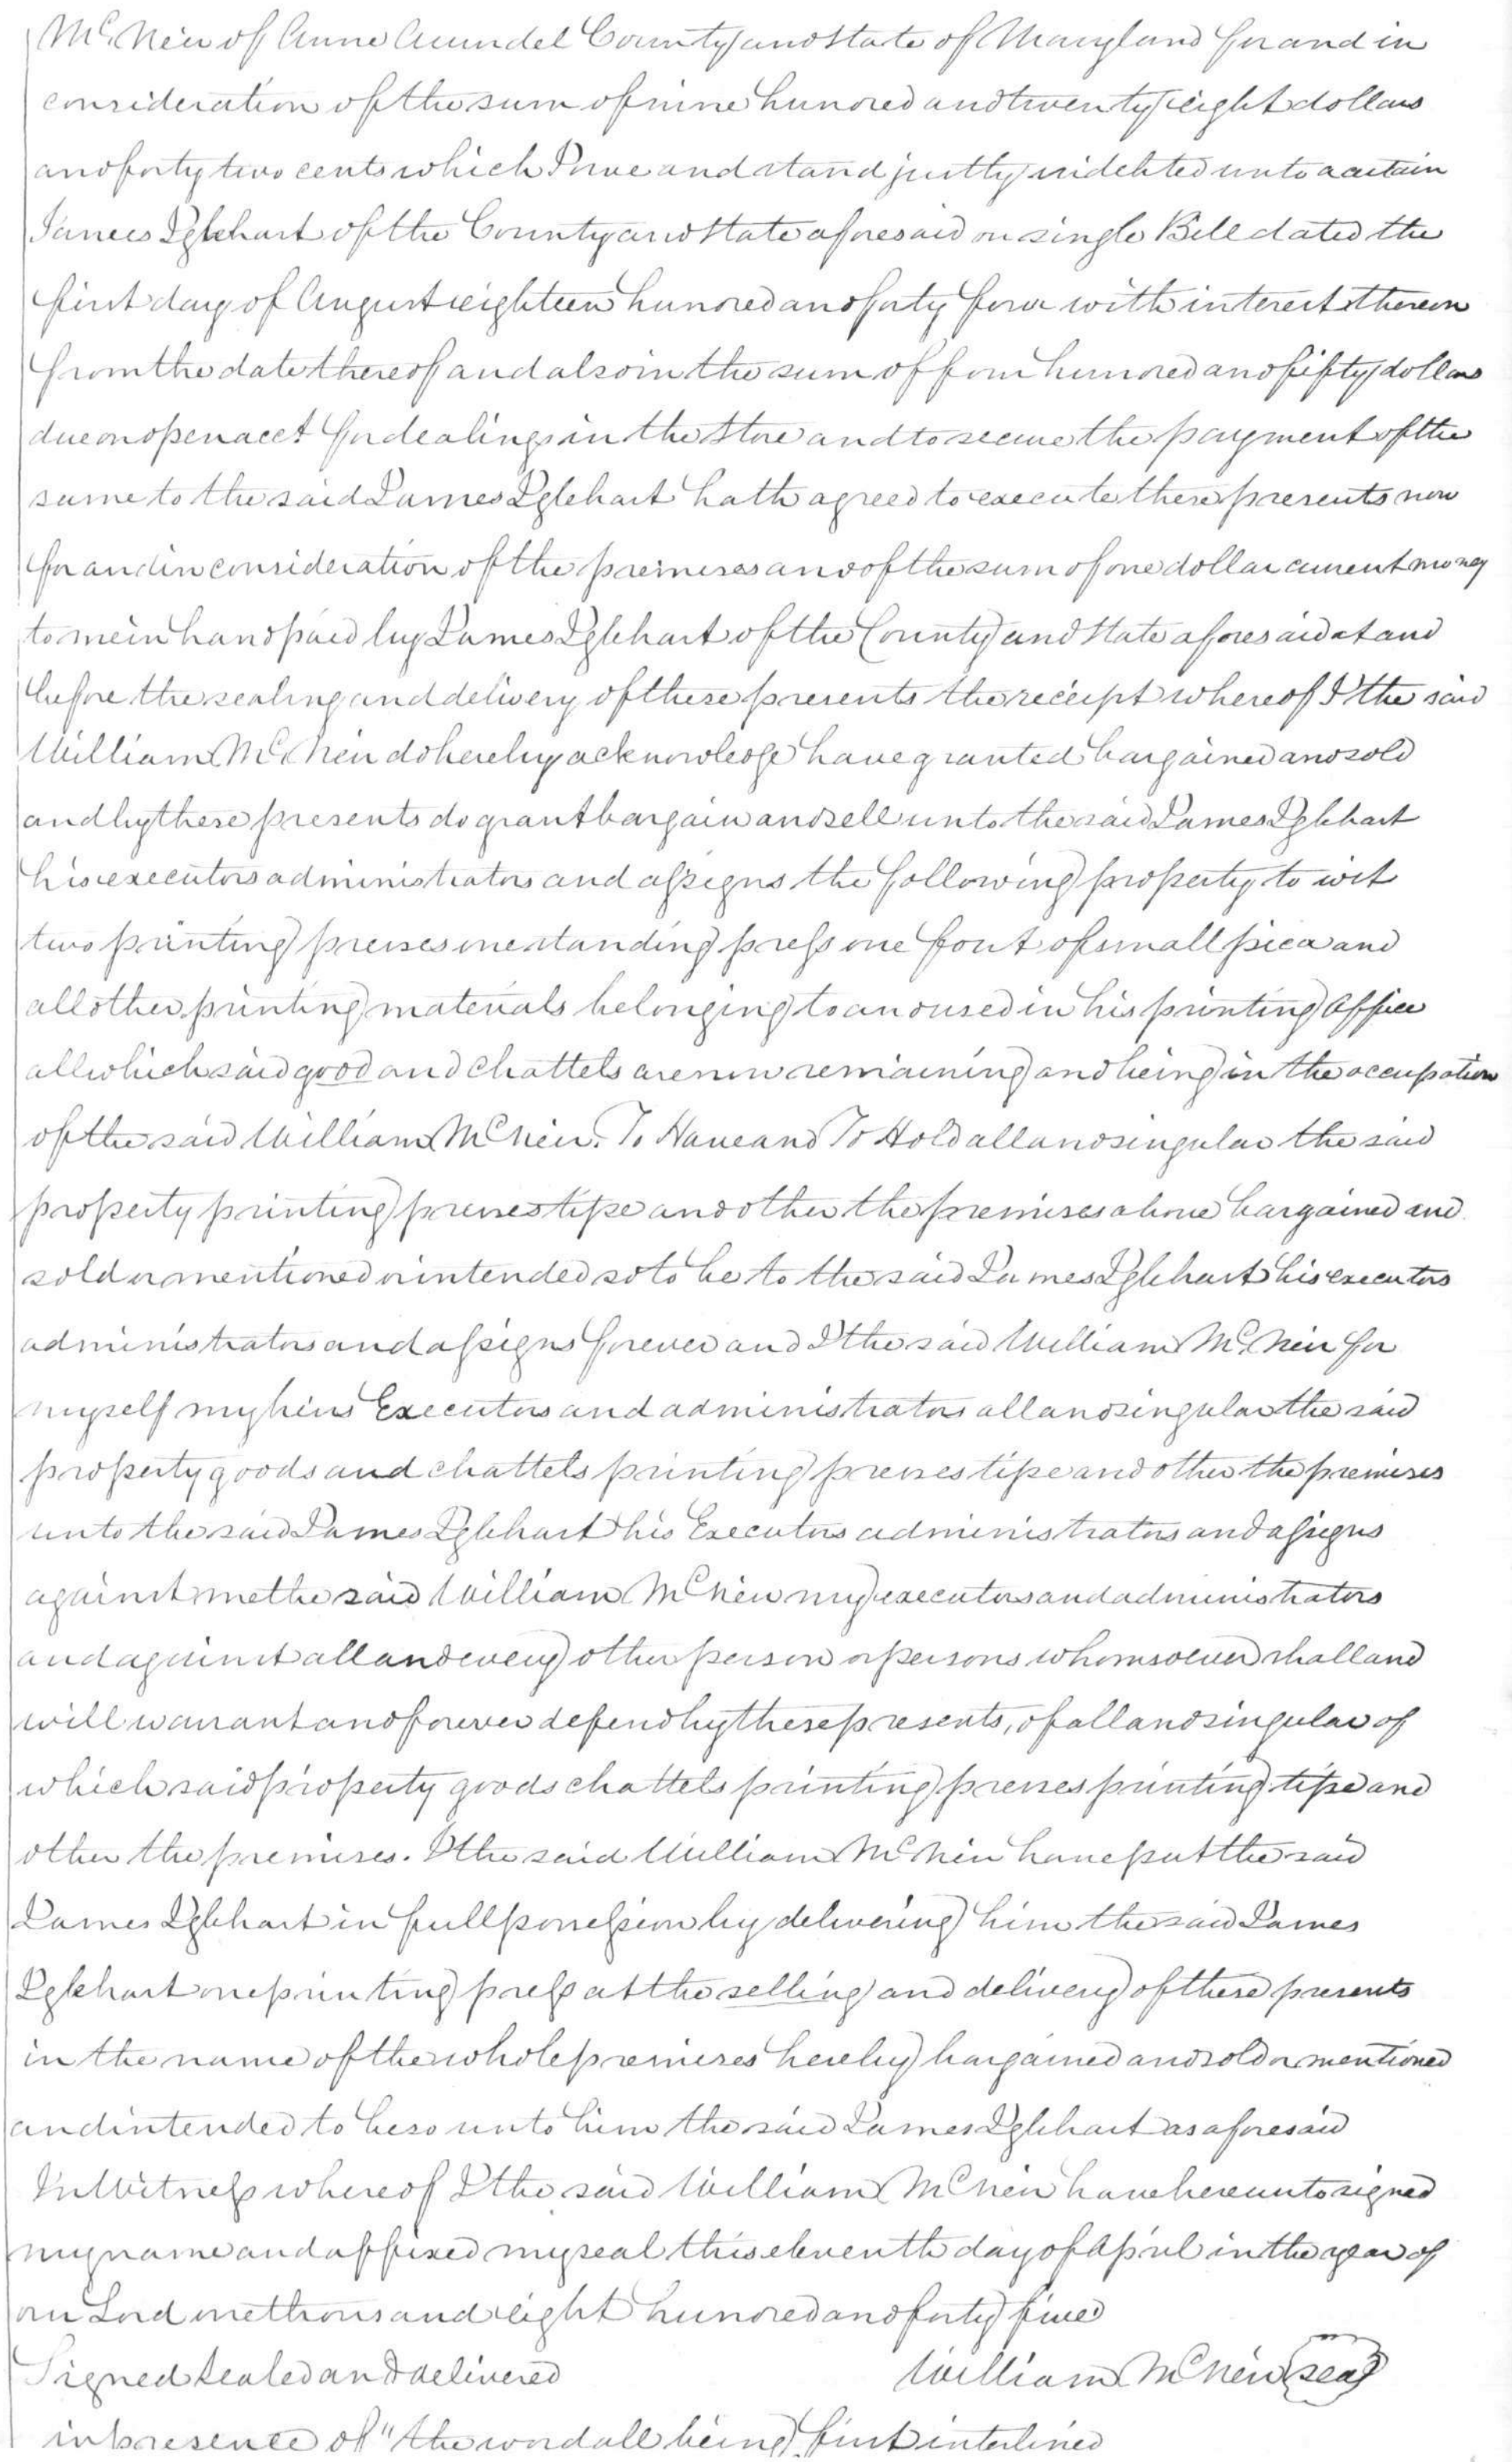 McNeir of Anne Arundel County and State of Maryland for and in
consideration of the sum of nine hundred and twenty eight dollars
and forty two cents which I owe and stand justly indebted unto a certain
James Iglehart of the County and State aforesaid on single Bill dated the
first day of August eighteen hundred and forty four with interest thereon
from the date thereof and also in the sum of four hundred and fifty dollars
due on open acct for dealings in the store and to secure the payment of the
same to the said James Iglehart hath agreed to execute these presents now
for and in consideration of the premises and of the sum of one dollar current money
to me in hand paid by James Iglehart of the County and State aforesaid at and
before the sealing and delivery of these presents the receipt whereof I the said
William McNeir do hereby acknowledge have granted bargained and sold
and by these presents do grant bargain and sell unto the said James Iglehart
his executors administrators and assigns the following property to wit
two printing presses one standing press one font of small pica and
all other printing materials belonging to and used in his printing office
all which said good and Chattels are now remaining and being in the occupation
of the said William McNeir. To Have and To Hold all and singular the said
property printing presses tipe and other the premises above bargained and
sold or mentioned or intended so to be to the said James Iglehart his executors
administrators and assigns forever and I the said William McNeir for
myself my heirs Executors and administrators all and singular the said
property goods and chattels printing presses tipe and other the premises
unto the said James Iglehart his Executors administrators and assigns
against me the said William McNeir my executors and administrators
and against all and every other person or persons whomsoever shall and
will warrant and forever defend by these presents, of all and singular of
which said property goods chattels printing presses printing tipe and
other the premises. I the said William McNeir have put the said
James Iglehart in full possession by delivering him the said James
Iglehart one printing press at the selling and delivery of these presents
in the name of the whole premises hereby bargained and sold or mentioned
and intended to be so unto him the said James Iglehart as aforesaid
In Witness whereof I the said William McNeir have hereunto signed
my name and affixed my seal this eleventh day of April in the year of
our Lord one thousand eight hundred and forty five
Signed Sealed and delivered William McNeir (seal)
in presence of "the word all being first interlined